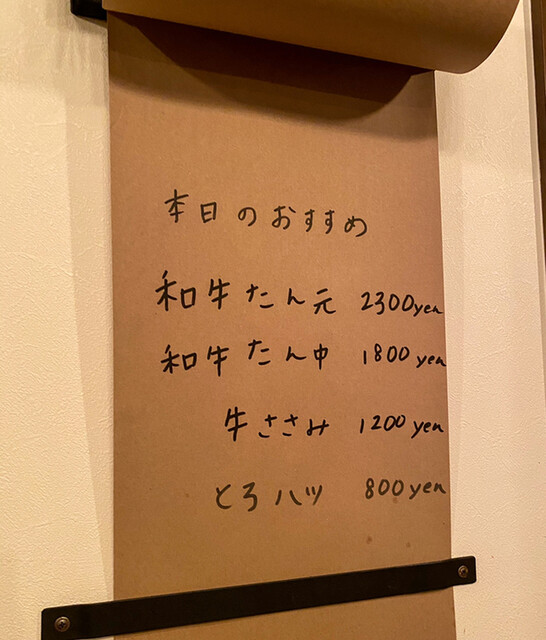 本日のおすすめ
和牛たん元 2300yen
和牛たん中 1800yen
牛ささみ 1200yen
とろハツ 800yen